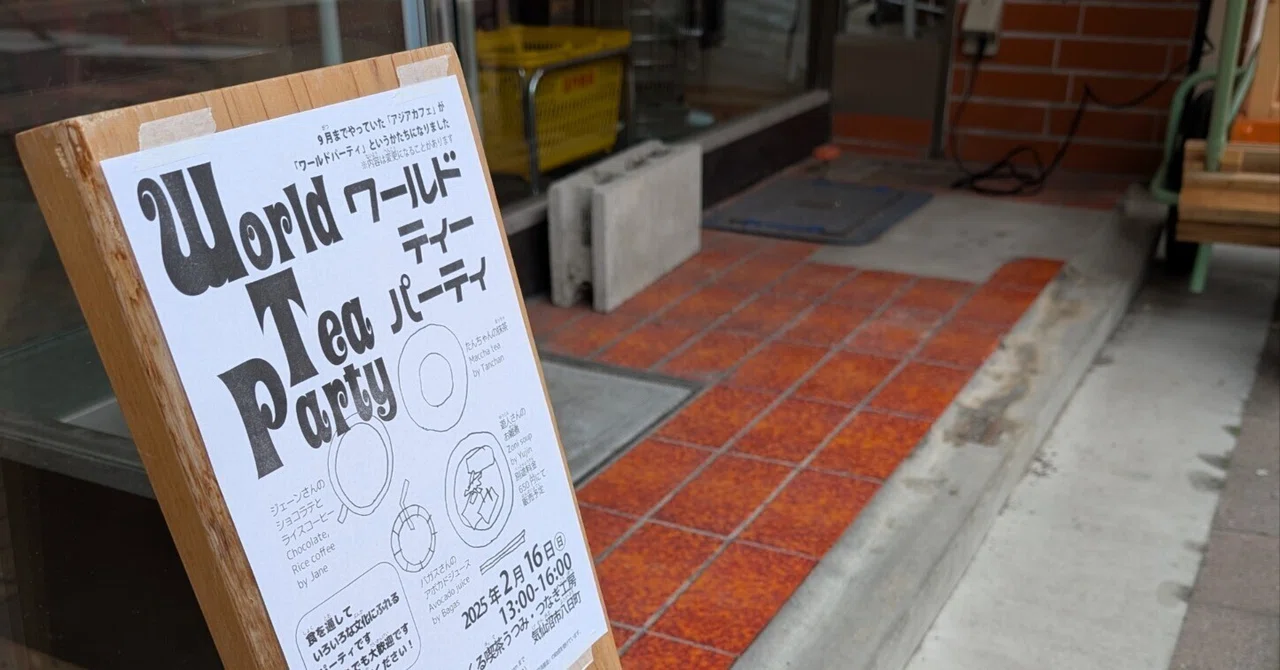 9月までやっていた「アジアカフェ」が
「ワールドパーティ」というかたちになりました
※内容は変更になることがあります
World
Tea
Party
ワールド
ティー
パーティ
たんちゃんの抹茶
Maccha tea
by Tanchan
遊人さんの
お雑煮
Zoni soup
by Yujin
別途料金
650円にて
販売予定
ジェーンさんの
ショコラテと
ライスコーヒー
Chocolate,
Rice coffee
by Jane
バガスさんの
アボカドジュース
Avocado juice
by Bagas
2025年2月16日(日)
13:00-16:00
る喫茶うつみ・つなぎ工房
気仙沼市八日町
食を通して
いろいろな文化にふれる
パーティです
でも大歓迎です
ください！